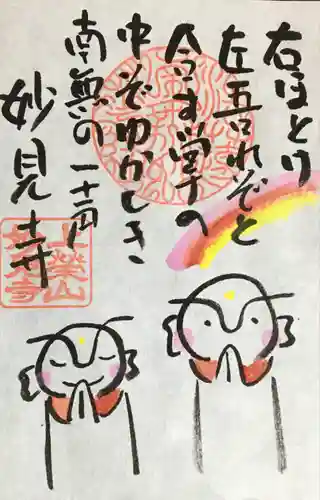 右ほとけ
左吾れぞと
合す掌の
中ぞゆかしき
南無の一声
妙見寺